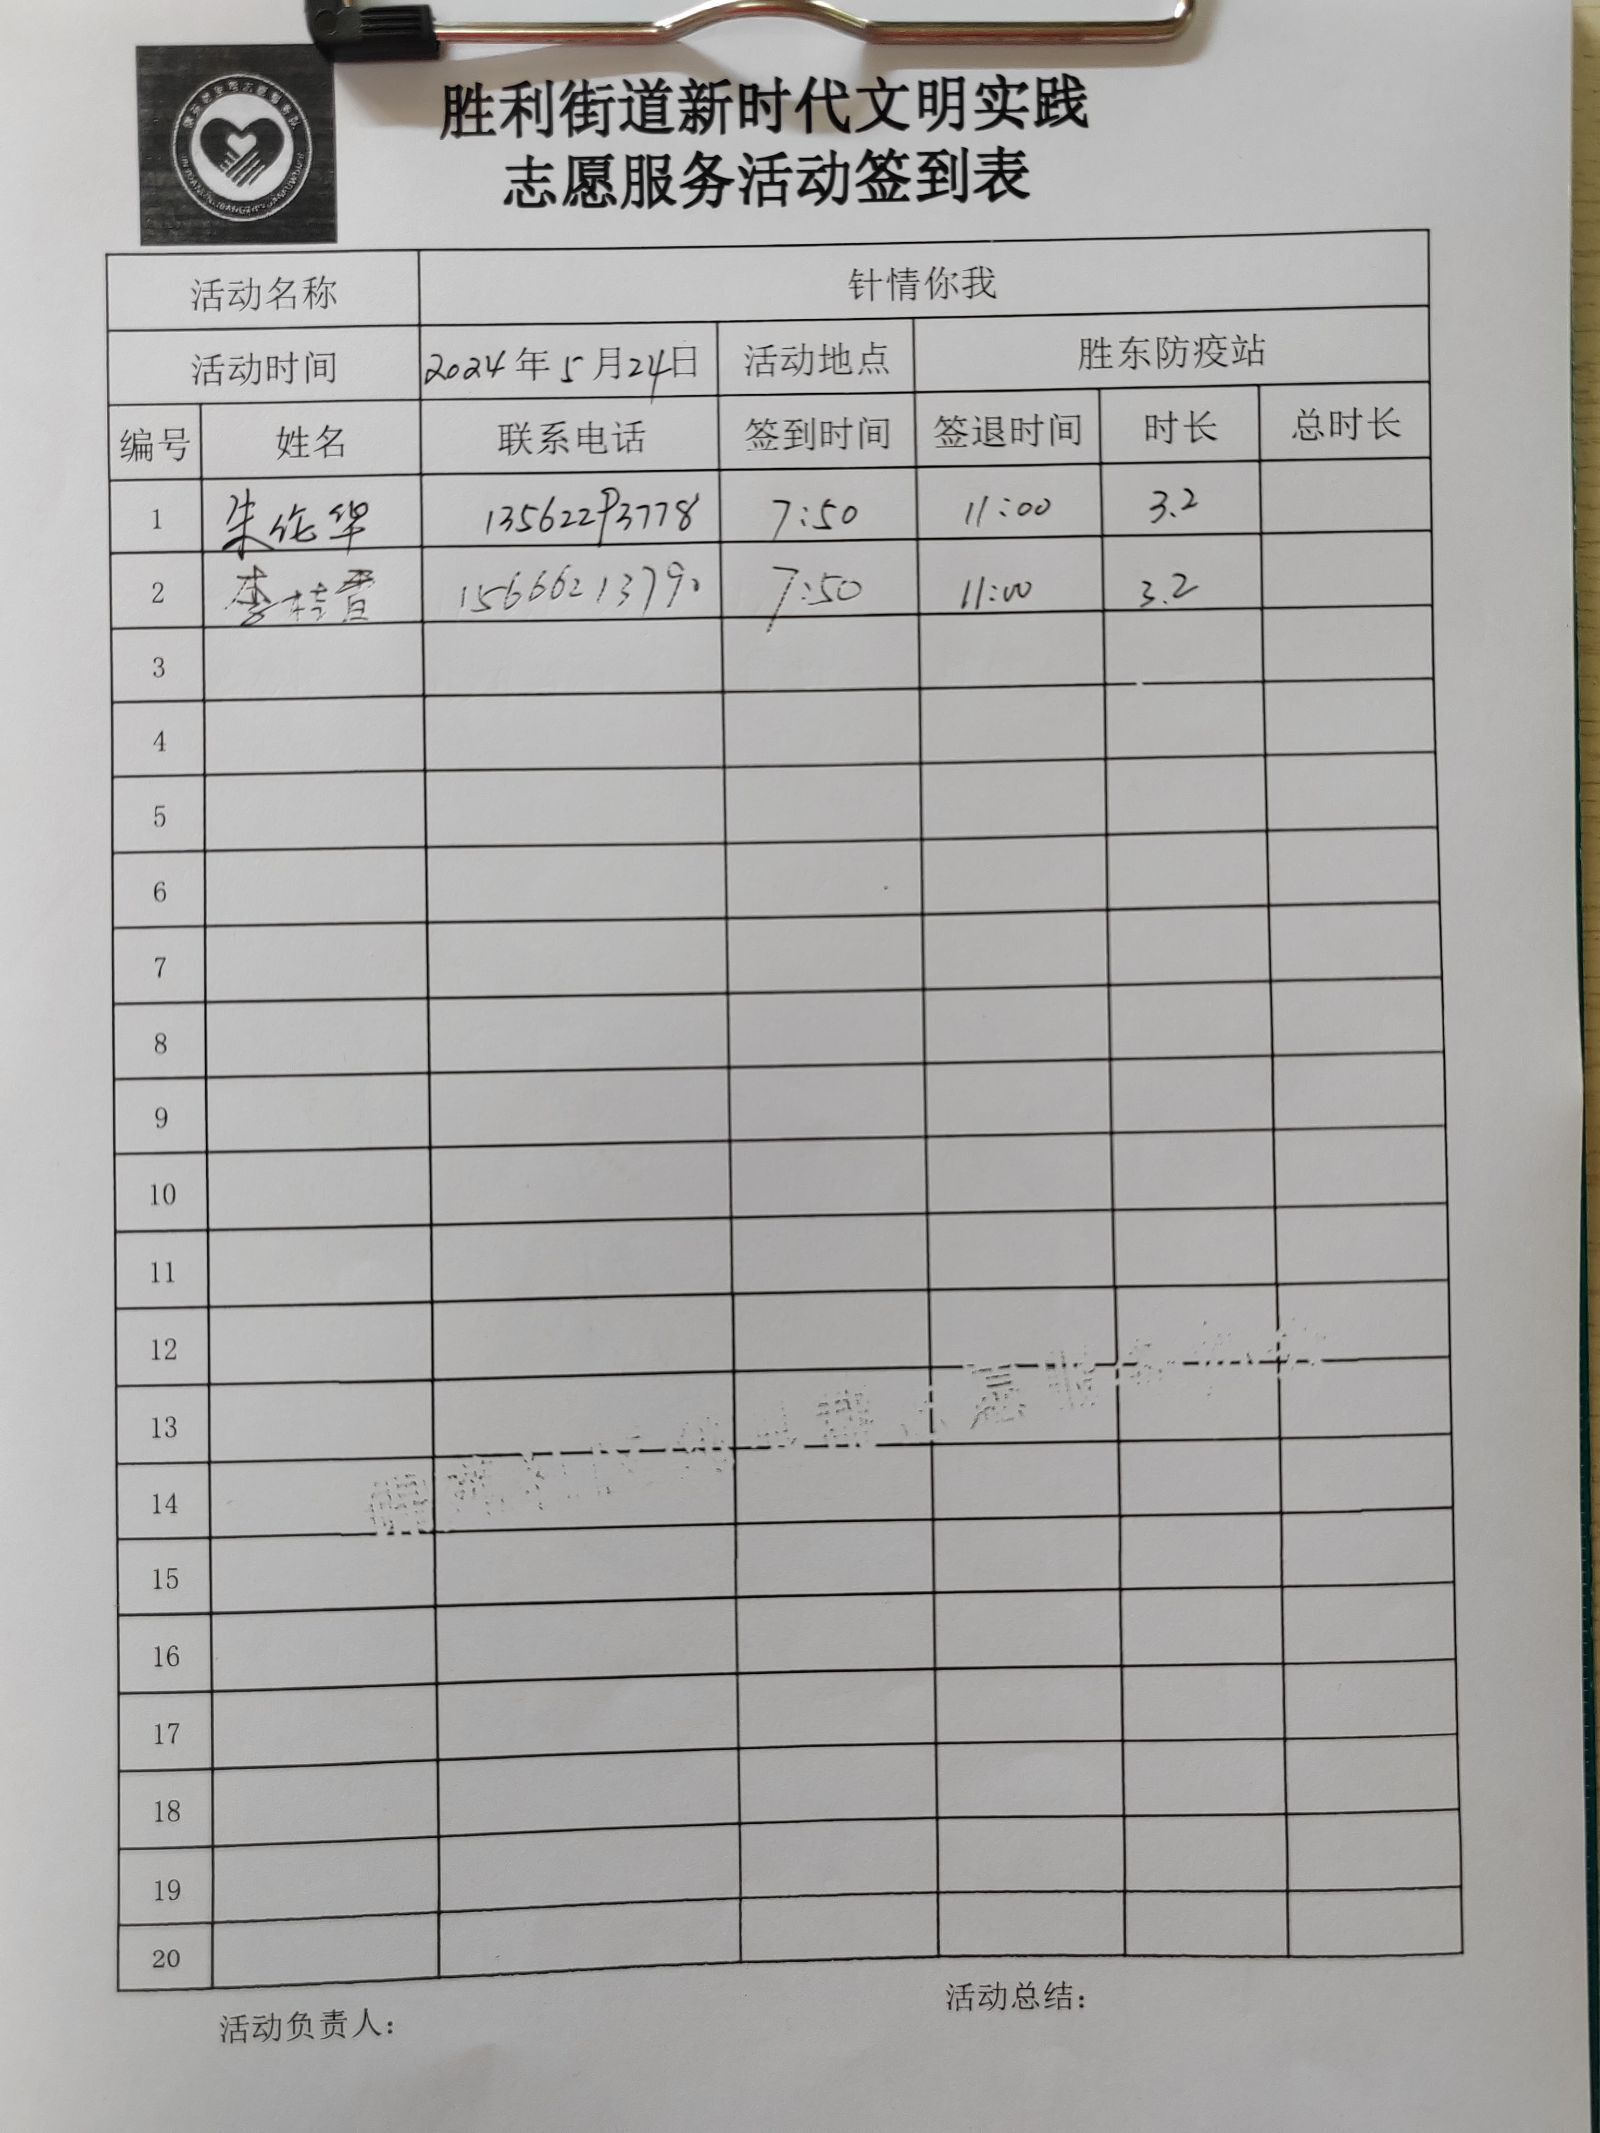 胜利街道新时代文明实践
志愿服务活动签到表
活动名称 针情你我
活动时间 2024年5月24日 活动地点 胜东防疫站
编号 姓名 联系电话 签到时间 签退时间 时长 总时长
1 朱伦华 13562293778 7:50 11:00 3.2
2 李桂香 15666213790 7:50 11:00 3.2
3
4
5
6
7
8
9
10
11
12
13
14
15
16
17
18
19
20
活动负责人: 活动总结: